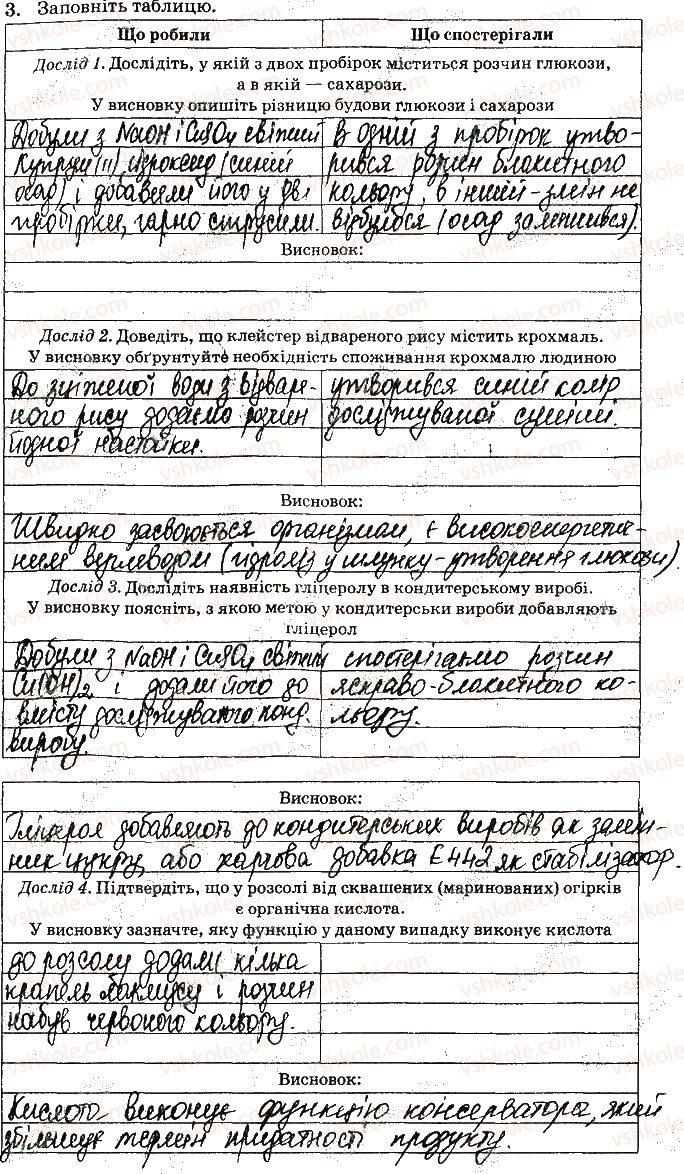 3. Заповніть таблицю.
Що робили Що спостерігали
Дослід 1. Дослідіть, у якій з двох пробірок міститься розчин глюкози,
а в якій — сахарози.
У висновку опишіть різницю будови глюкози і сахарози
Добули з NaOH і CuSO4 свіжий в одній з пробірок утво-
Купрум (II) гідроксид (синій рився розчин блакитного
осад) і добавили його у дві кольору, в іншій - змін не
пробірки, гарно струсили. відбулося (осад залишився).
Висновок:
Дослід 2. Доведіть, що клейстер відвареного рису містить крохмаль.
У висновку обґрунтуйте необхідність споживання крохмалю людиною
До зціженої води з відваре- утворився синій колір
ного рису додаємо розчин досліджуваної суміші.
йодної настойки.
Висновок:
Швидко засвоюється організмом, є високоенергетич-
ним вуглеводом (гідроліз у шлунку - утворення глюкози).
Дослід 3. Дослідіть наявність гліцеролу в кондитерському виробі.
У висновку поясніть, з якою метою у кондитерськи вироби добавляють
гліцерол
Добули з NaOH і CuSO4 свіжий спостерігаємо розчин
Cu(OH)2 і додали його до яскраво-блакитного ко-
вмісту досліджуваного конд. льору.
виробу.
Висновок:
Гліцерол добавляють до кондитерських виробів як замін-
ник цукру, або харчова добавка Е442 як стабілізатор.
Дослід 4. Підтвердіть, що у розсолі від сквашених (маринованих) огірків
є органічна кислота.
У висновку зазначте, яку функцію у даному випадку виконує кислота
до розсолу додали кілька
крапель лакмусу і розчин
набув червоного кольору.
Висновок:
Кислота виконує функцію консерватора, який
збільшує термін придатності продукту.